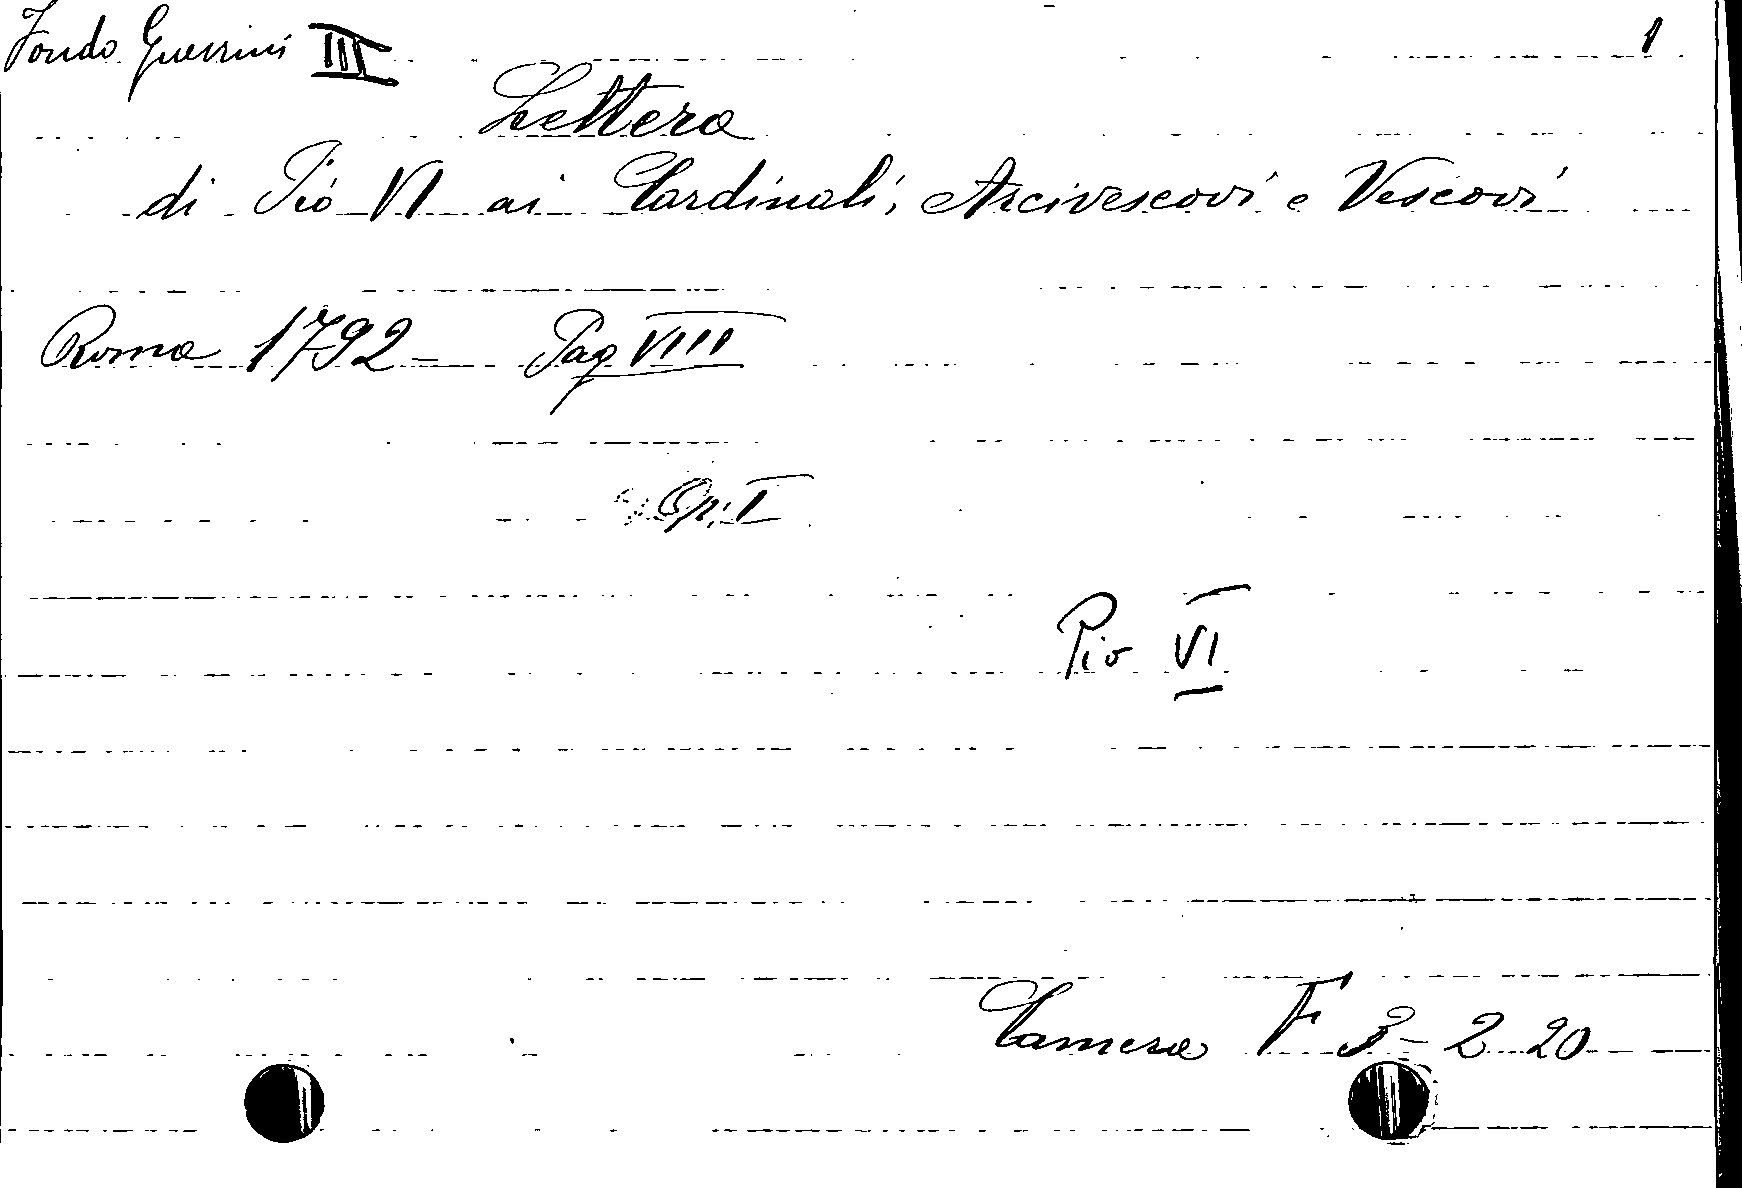 Fondo Guerrini III 1
Lettera
di Pio VI ai Cardinali, Arcivescovi e Vescovi
Roma 1792 = Pag VIII
Op. I
Pio VI
Camera F 3 - 2 20